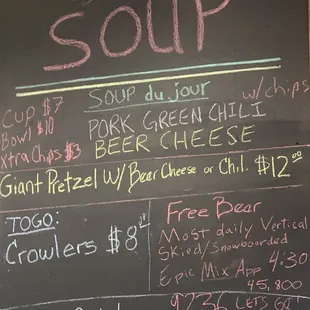 SOUP
SOUP du jour
w/chips
CUP $7
Bowl $10
Xtra Chips $3
PORK GREEN CHILI
BEER CHEESE
Giant Pretzel w/ Beer Cheese or Chil. $12.00
TOGO:
Crowlers $8
Free Beer
Most daily Vertical
Skied/Snowboarded
Epic Mix App 4:30
45,800
9236 LETS GO!